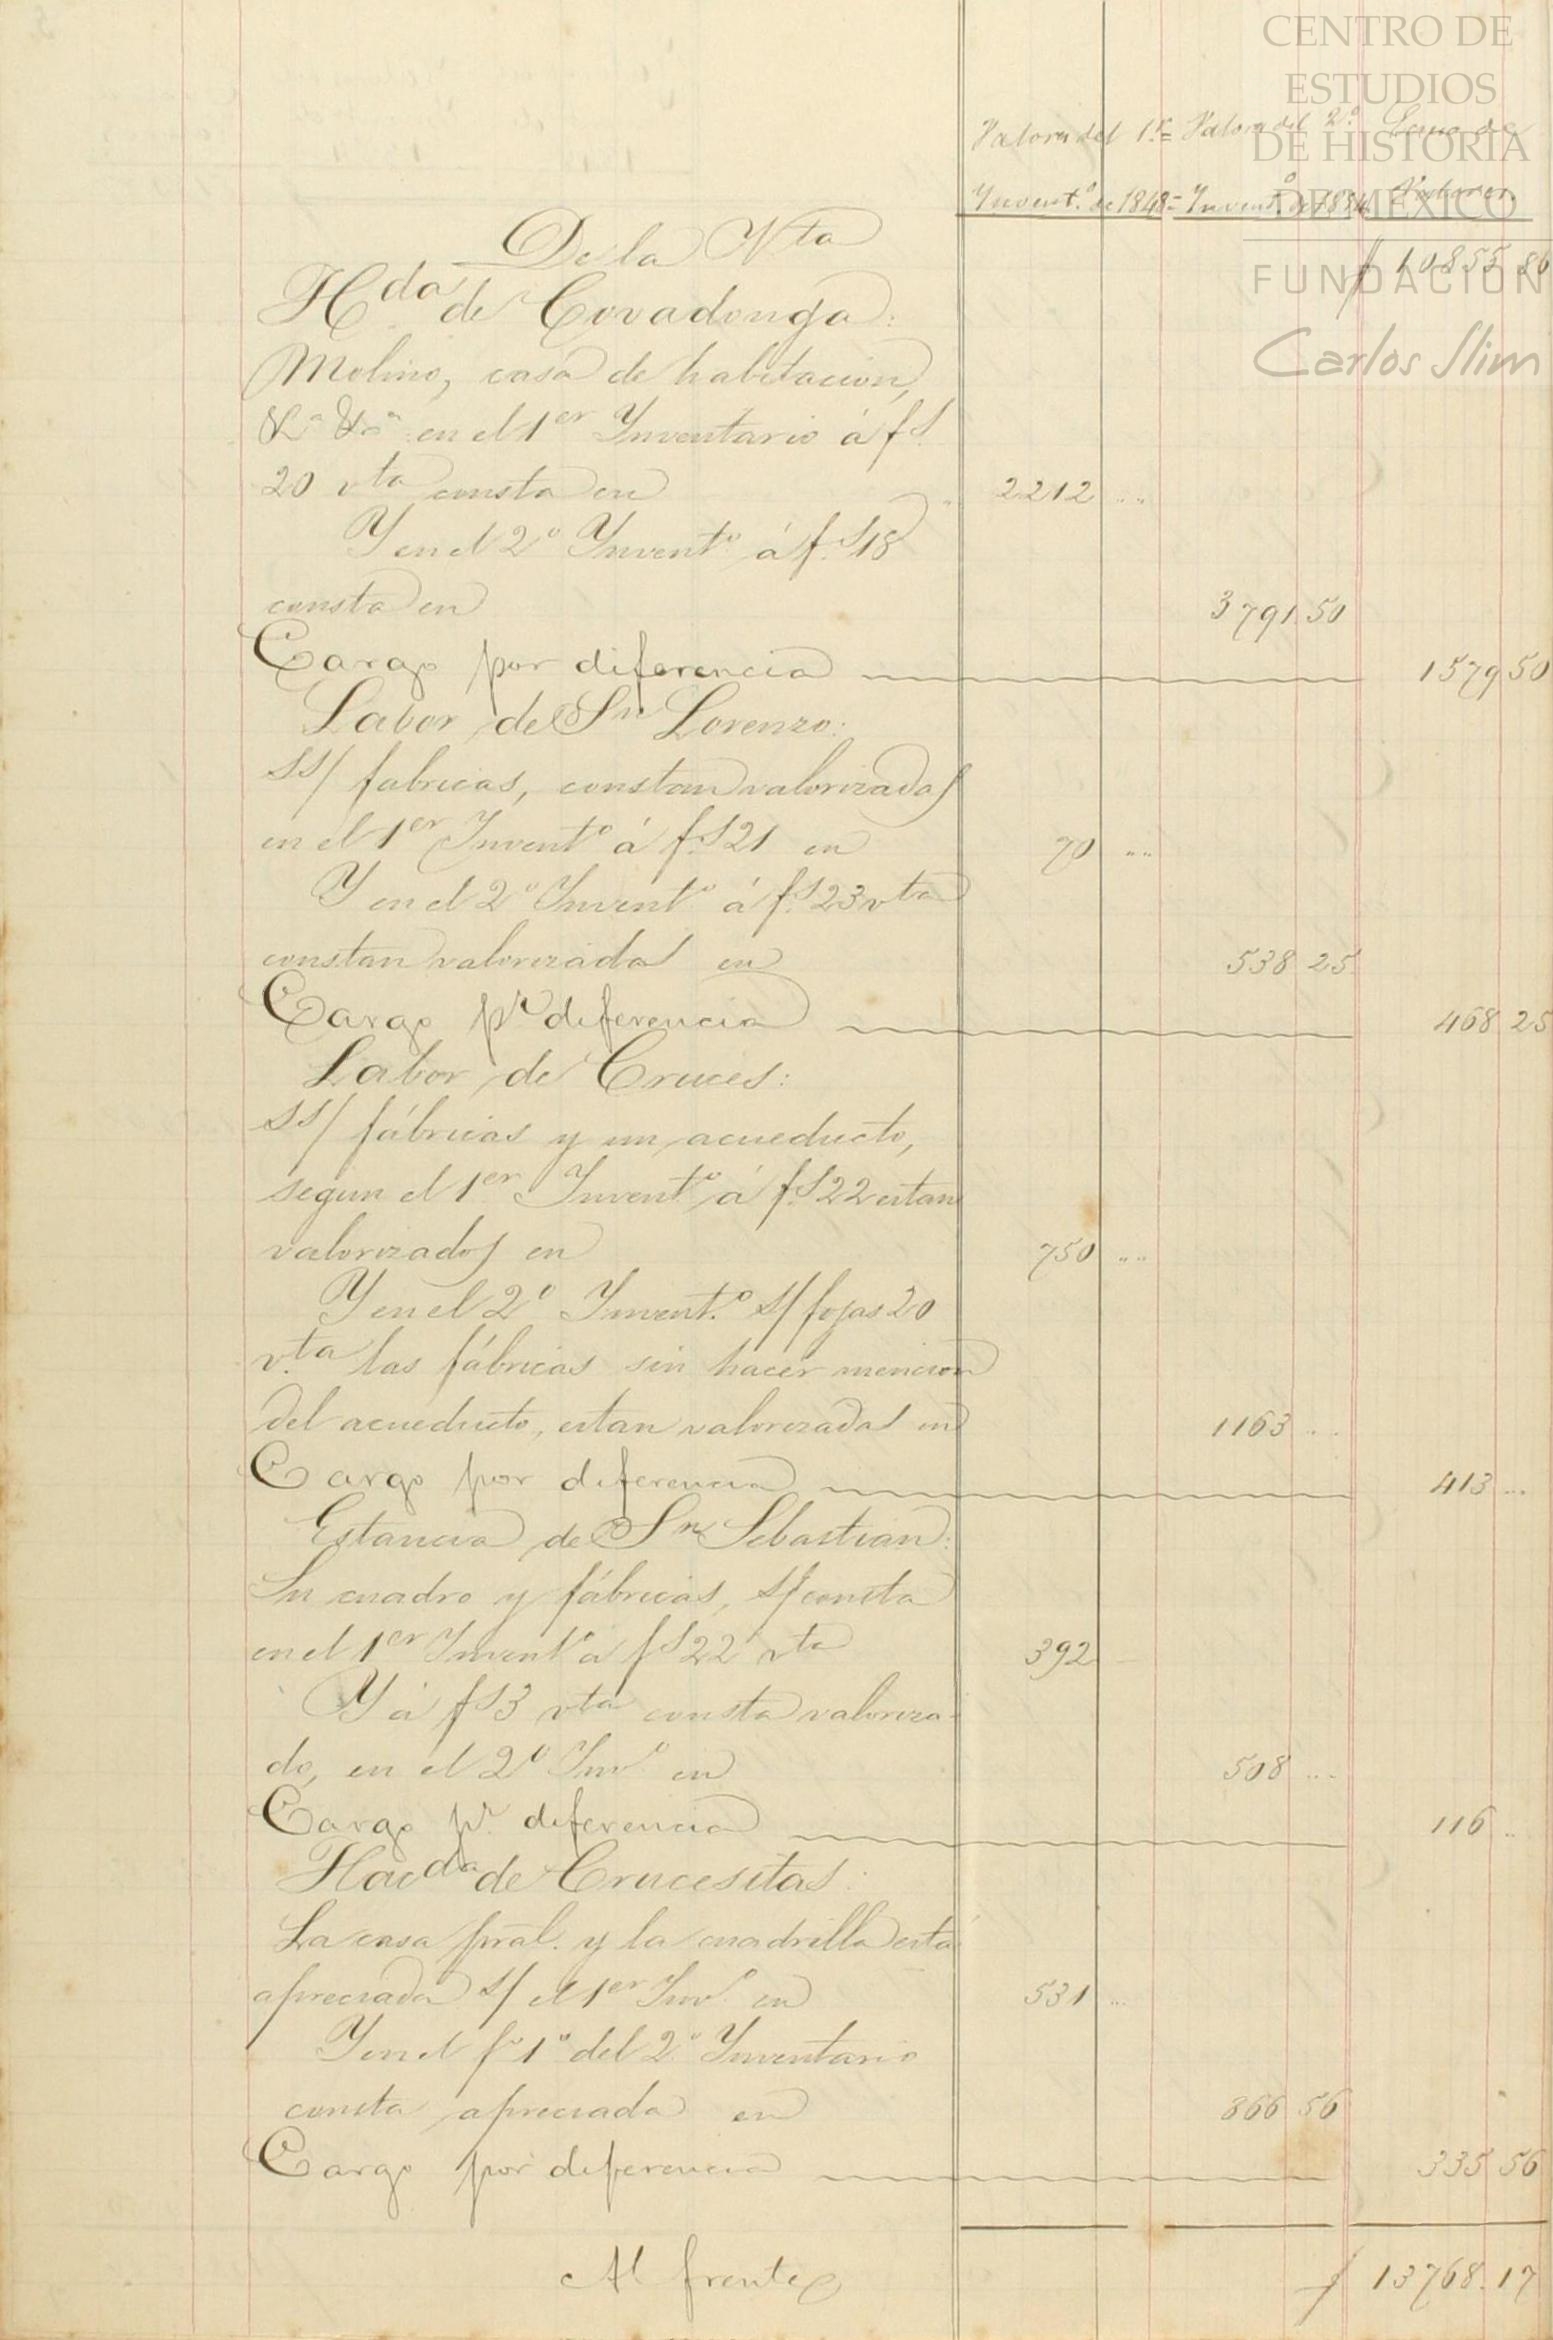 CENTRO DE
ESTUDIOS
DE HISTORIA
DE MEXICO
FUNDACIÓN
Carlos Slim
Valores del 1er Valores del 2o
Invent.o de 1848 = Invent.o de 18 Valores
De la Vta $ 10855 86
Hda de Covadonga:
Molino, casa de habitacion,
&a &a en el 1er Inventario á fs.
20 vta consta en 2212 ....
Y en el 2o Invento á fs 18
consta en 3791 50
Cargo por diferencia 1579 50
Labor de Sn Lorenzo:
SS/ fabricas, constan valorizadas
en el 1er Invento á fs 21 en 70 ....
Y en el 2o Invento á fs 23 vta
constan valorizadas en 538 25
Cargo pr diferencia 468 25
Labor de Cruces:
SS/ fábricas y un acueducto,
segun el 1er Invent.o á fs 22 estan
valorizados en 750 ....
Y en el 2o Invent.o s/ fojas 20
v.ta las fábricas sin hacer mencion
del acueducto, estan valorizadas en 1163 ...
Cargo por diferencia 413 ...
Estancia de Sn Sebastian:
Su cuadro y fábricas, s/ consta
en el 1er Invento a fs 22 vta 392
Y á fs 3 vta consta valoriza-
do, en el 2o Invo en 508 ...
Cargo pr. diferencia 116 ..
Hacda de Crucesitas:
La casa pral. y la cuadrilla está
apreciada s/ el 1er Invo en 531 ...
Y en el fo 1o del 2o Inventario
consta apreciada en 866 56
Cargo por diferencia 335 56
Al frente $ 13768.17